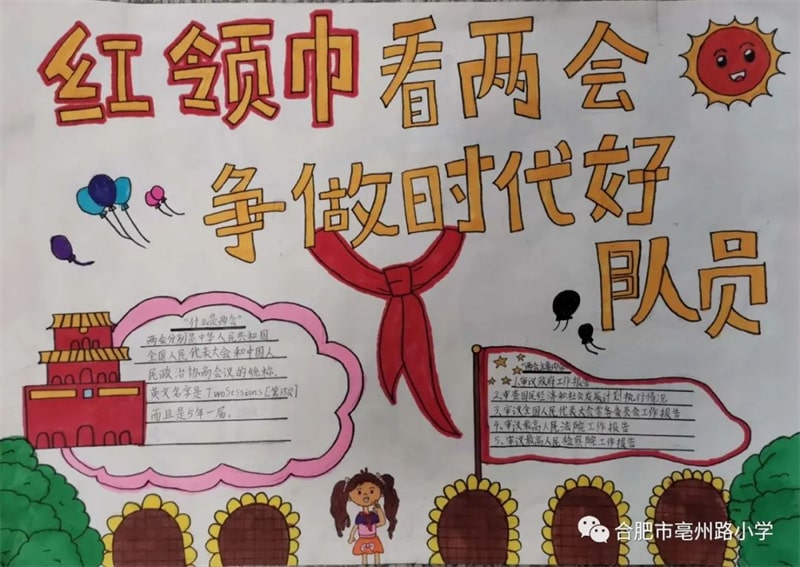 红领巾看两会
争做时代好
队员
"什么是两会"
两会分别是中华人民共和国
全国人民代表大会和中国人
民政治协商会议的统称。
英文名字是 Two Sessions
而且是5年一届。
"两会主要内容"
1、审议政府工作报告
2、审查国民经济和社会发展计划执行情况
3、审议全国人民代表大会常务委员会工作报告
4、审议最高人民法院工作报告
5、审议最高人民检察院工作报告
合肥市亳州路小学